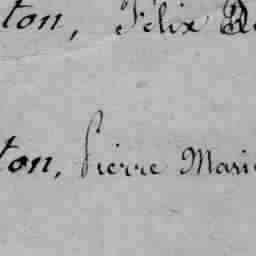 ton, Félix
ton, Pierre Mari